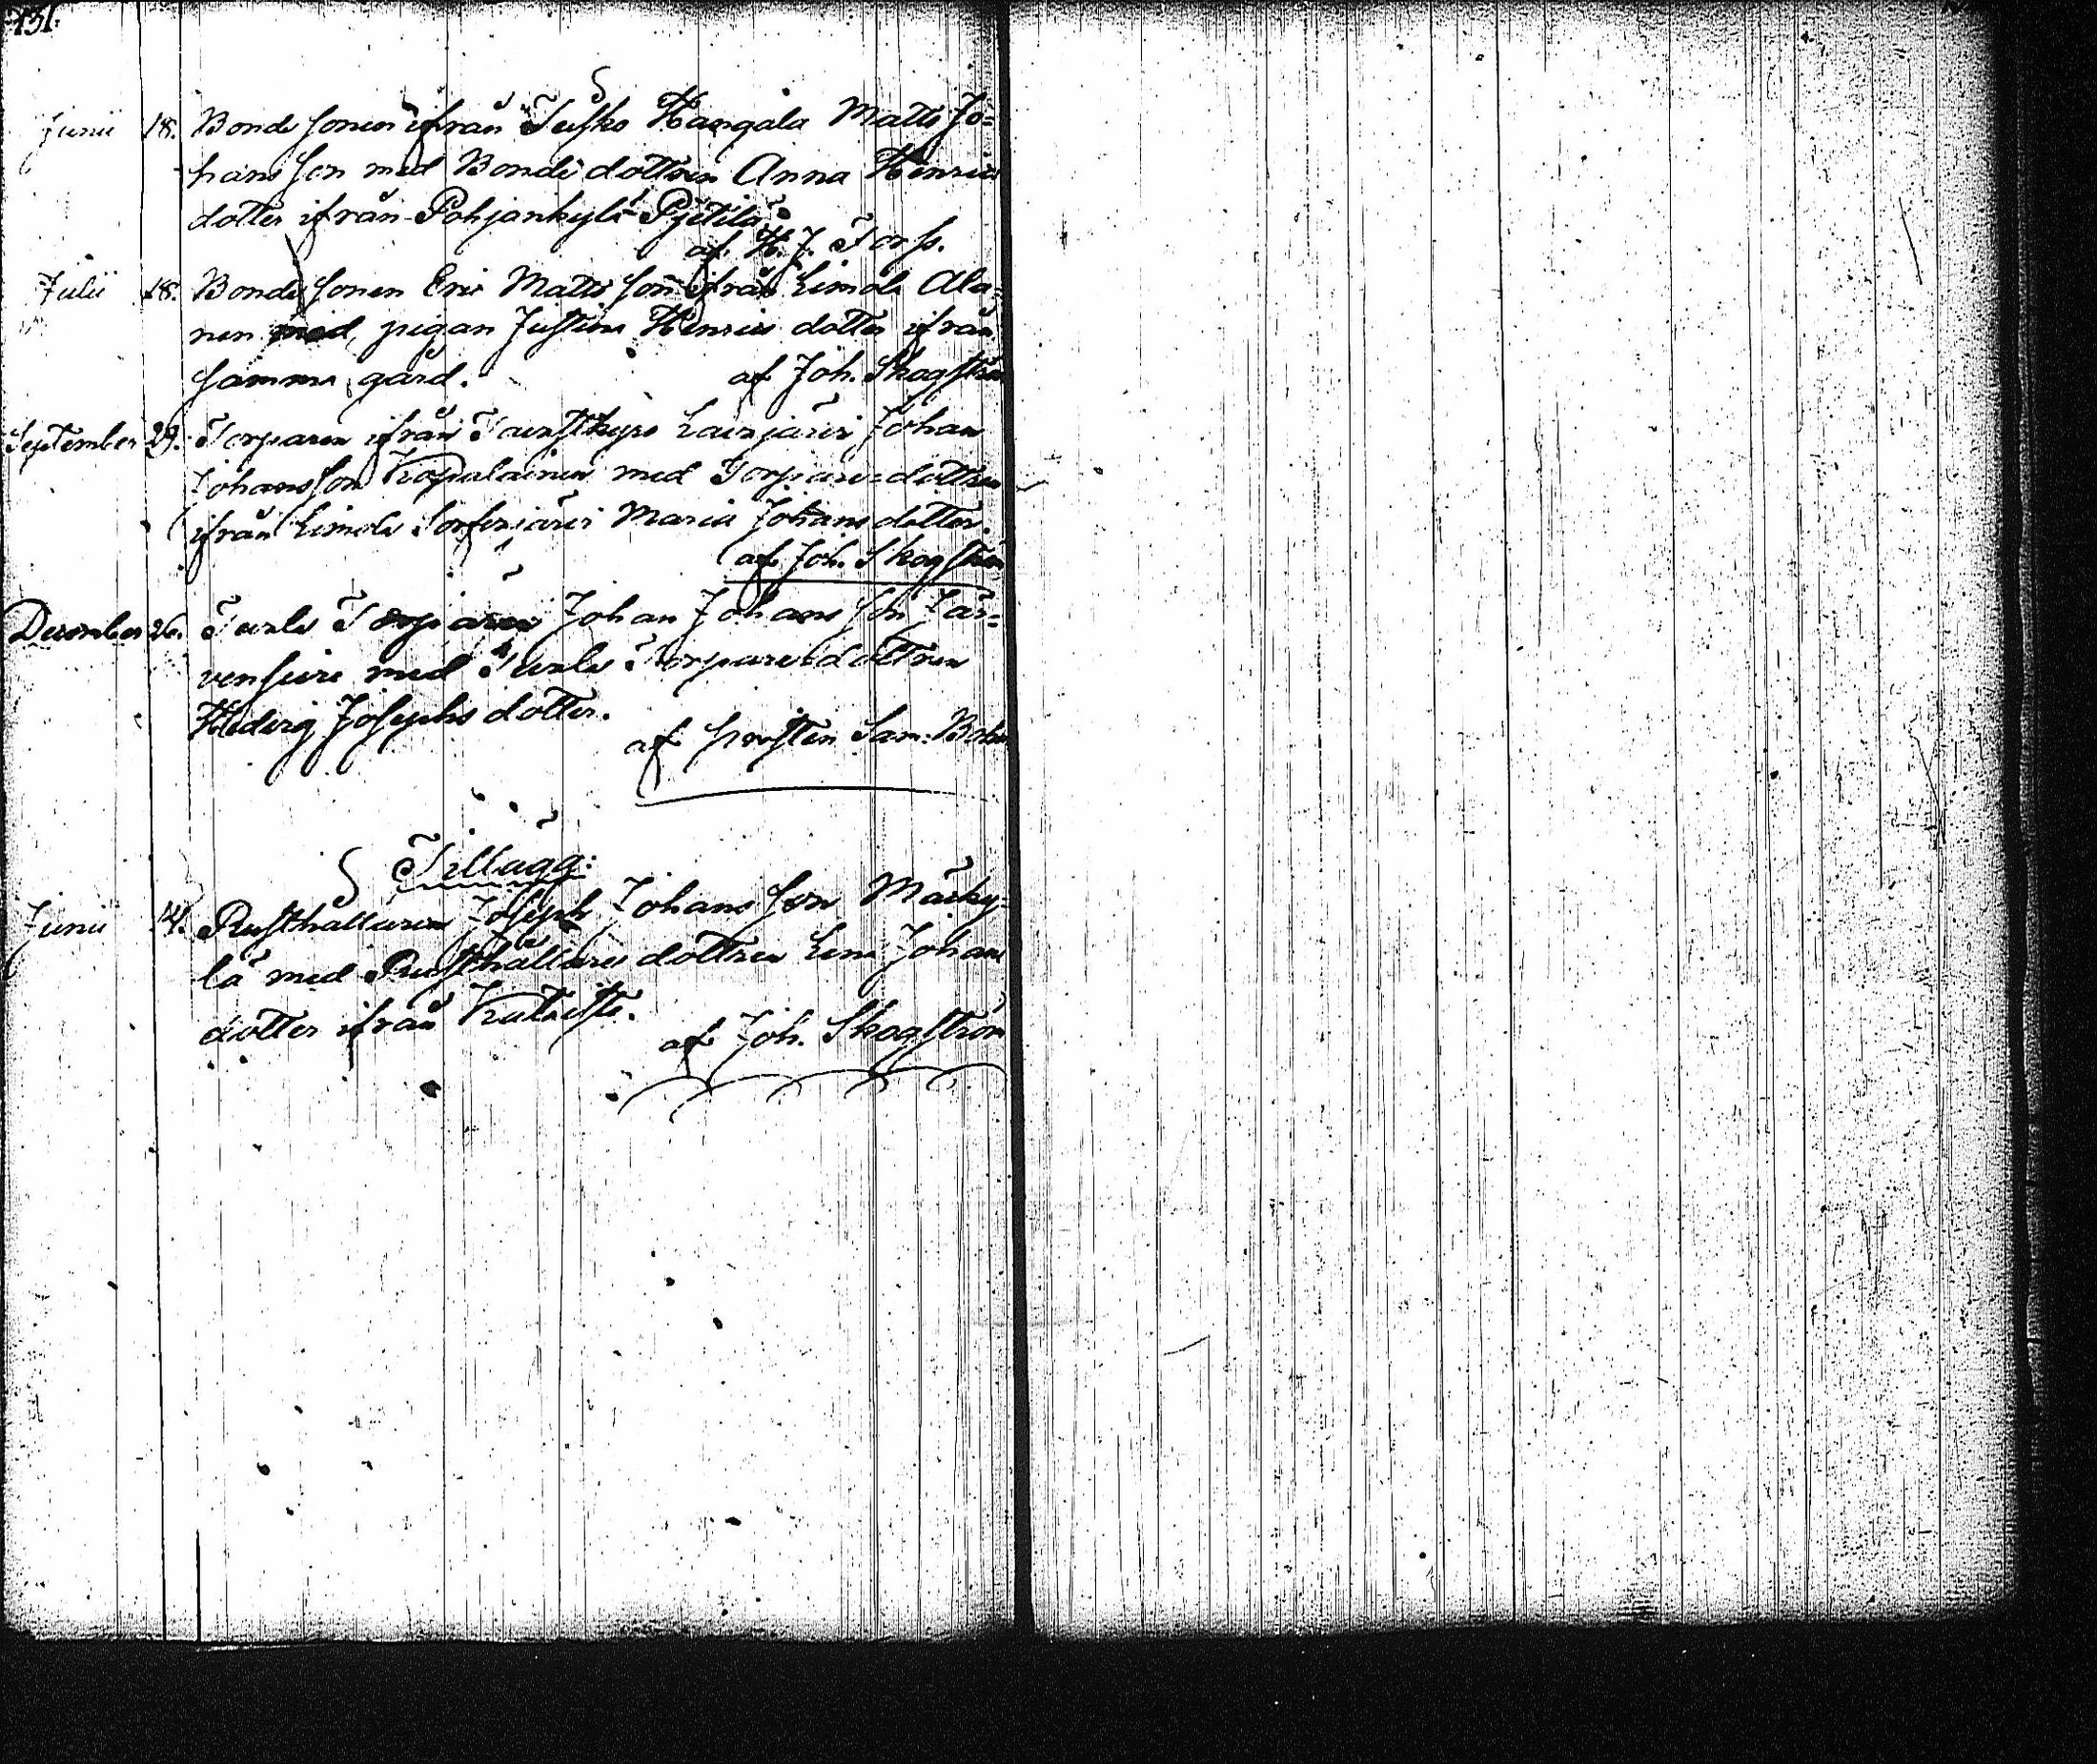 131.
Junii 18. Bonde sonen ifrån Tuisko Hangala Matts Jo=
hans son med Bonde dottren Anna Henrics
dotter ifrån Pohjankylä Pjetilä
af. H. J. Forss.
Julii 18. Bonde sonen Eric Matts son ifrån Limola Ala=
nen med pigan Justina Henrics dotter ifrån
samma gård. af Joh. Skogström
September 29. Torparen ifrån Johan
Johansson med Torpare=dottren
ifrån Limola Maria Johans dotter.
af Joh. Skogström
December 26. Torparen Johan Johans son Jär=
vensivu med Torpare dottren
Hedvig Josephs dotter.
af prosten Sam: Bohm
Tillägg:
Junii 14. Rusthållaren Joseph Johans son Mäiky=
lä med Rusthållare dottren Lena Johans
dotter ifrån
af Joh. Skogström